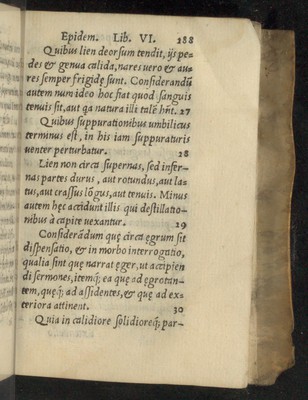 Epidem. Lib. VI. 288
Quibus lien deorsum tendit, ijs pe-
des & genua calida, nares uero & au-
res semper frigidę sunt. Considerandũ
autem num ideo hoc fiat quod sanguis
tenuis sit, aut qa natura illi talẽ hñt. 27
Quibus suppurationibus umbilicus
terminus est, in his iam suppuraturis
uenter perturbatur. 28
Lien non circa supernas, sed infer-
nas partes durus, aut rotundus, aut la-
tus, aut crassus lõgus, aut tenuis. Minus
autem hęc accidunt illis qui destillatio-
nibus à capite uexantur. 29
Considerãdum quę circa ęgrum sit
dispensatio, & in morbo interrogatio,
qualia sint quę narrat ęger, ut accipien
di sermones, itemq́; ea quę ad ęgrotan-
tem, quęq́; ad assidentes, & quę ad ex-
teriora attinent. 30
Quia in calidiore solidioreq́; par-